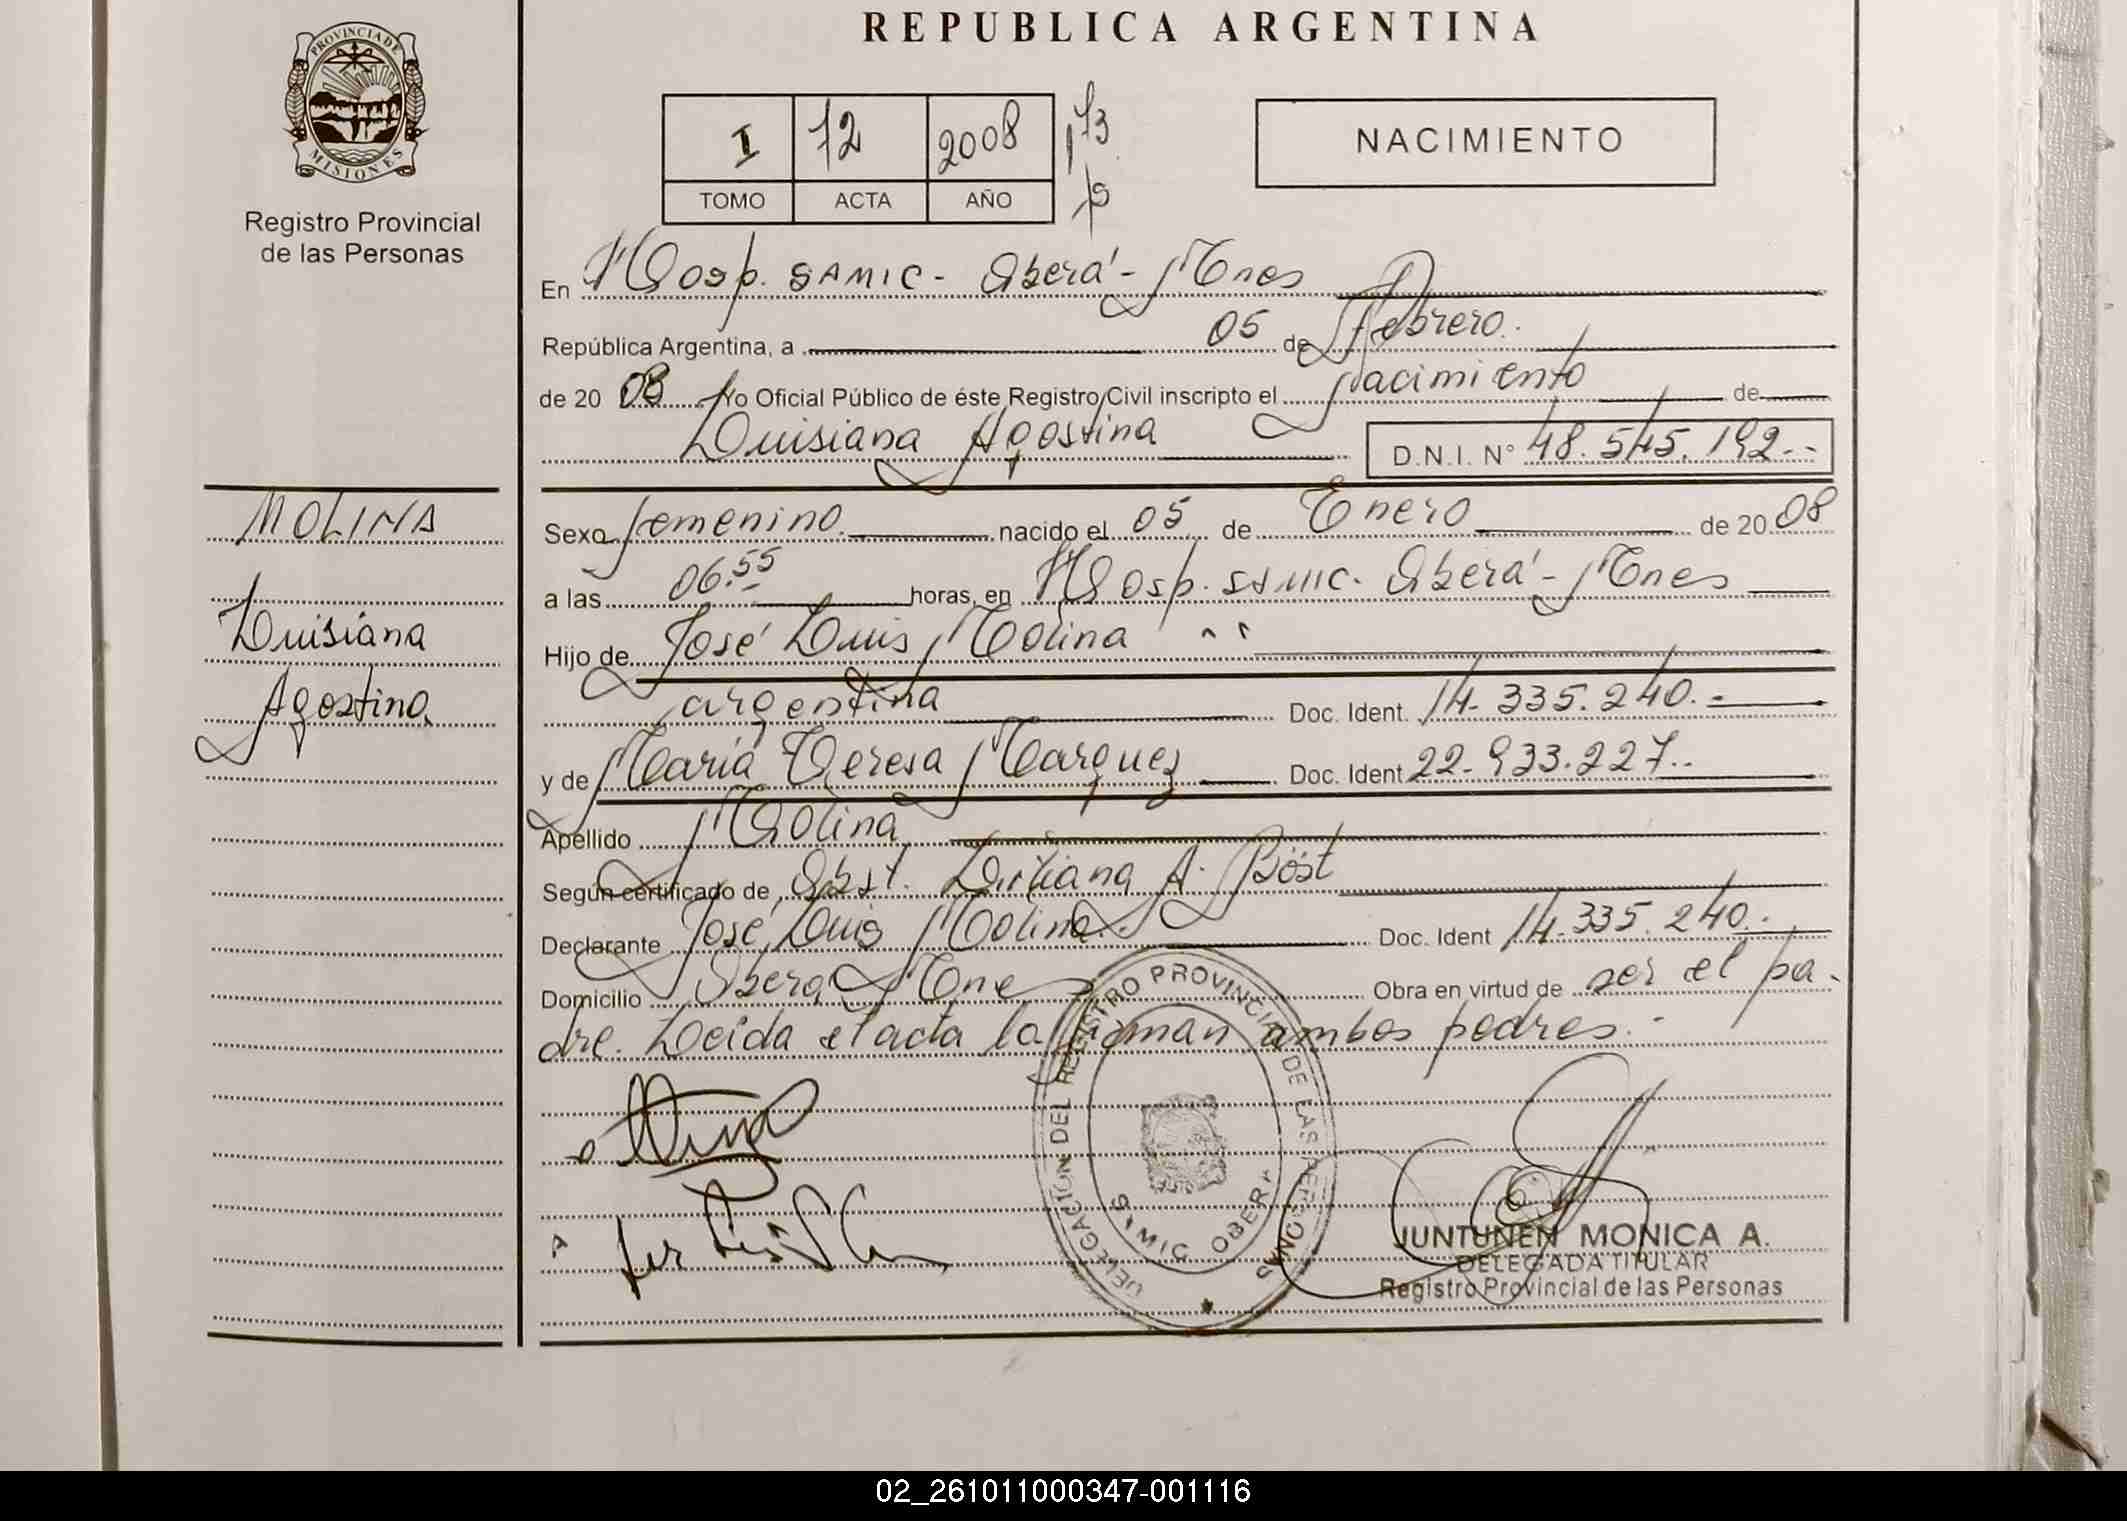 REPUBLICA ARGENTINA
PROVINCIA DE
MISIONES
Registro Provincial
de las Personas
I 72 2008 173
TOMO ACTA AÑO
NACIMIENTO
En Hosp. SAMIC - Oberá - Mnes
República Argentina, a 05 de Febrero.
de 20 08 Yo Oficial Público de éste Registro Civil inscripto el nacimiento de
Luisiana Agostina D.N.I. N° 48.545.192.-
MOLINA
Luisiana
Agostina
Sexo femenino nacido el 05 de Enero de 20 08
a las 06.55 horas, en Hosp. SAMIC. Oberá - Mnes
Hijo de José Luis Molina
argentina Doc. Ident. 14.335.240.-
y de María Teresa Marquez Doc. Ident 22.933.227.
Apellido Molina
Según certificado de Obst. Liliana A. Böst
Declarante José Luis Molina Doc. Ident 14.335.240.
Domicilio Oberá Mnes Obra en virtud de ser el pa-
dre. Leida el acta la firman ambos padres.-
DELEGACIÓN DEL REGISTRO PROVINCIAL DE LAS PERSONAS
SAMIC OBERA
JUNTUNEN MONICA A.
DELEGADA TITULAR
Registro Provincial de las Personas
02_261011000347-001116